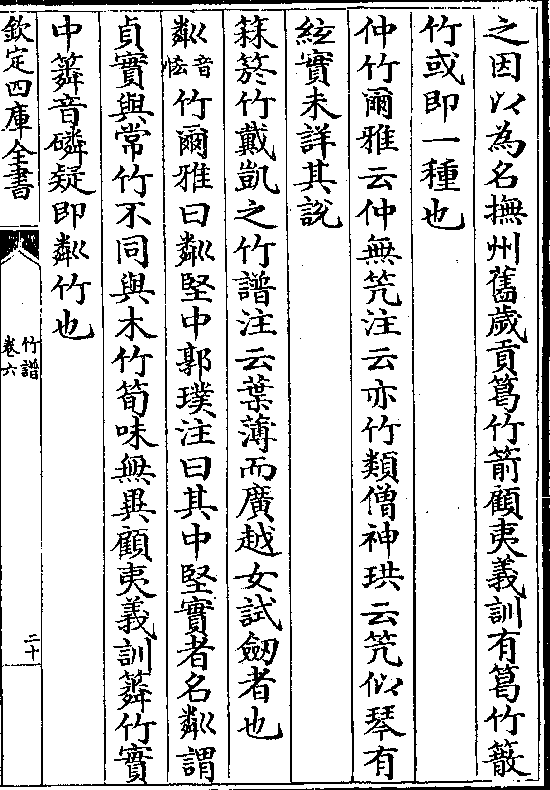 之因以為名撫州舊歲貢篃竹箭顧夷義訓有篃竹簸
竹或即一種也
仲竹爾雅云仲無笐注云亦竹類僧神珙云笐似琴有
絃實未詳其說
箖箊竹戴凱之竹譜注云葉薄而廣越女試劒者也
粼音恡竹爾雅曰粼堅中郭璞注曰其中堅實者名粼謂
貞實與常竹不同與木竹筍味無異顧夷義訓䉮竹實
中䉮音磷疑即粼竹也
欽定四庫全書
竹譜
卷六
二十